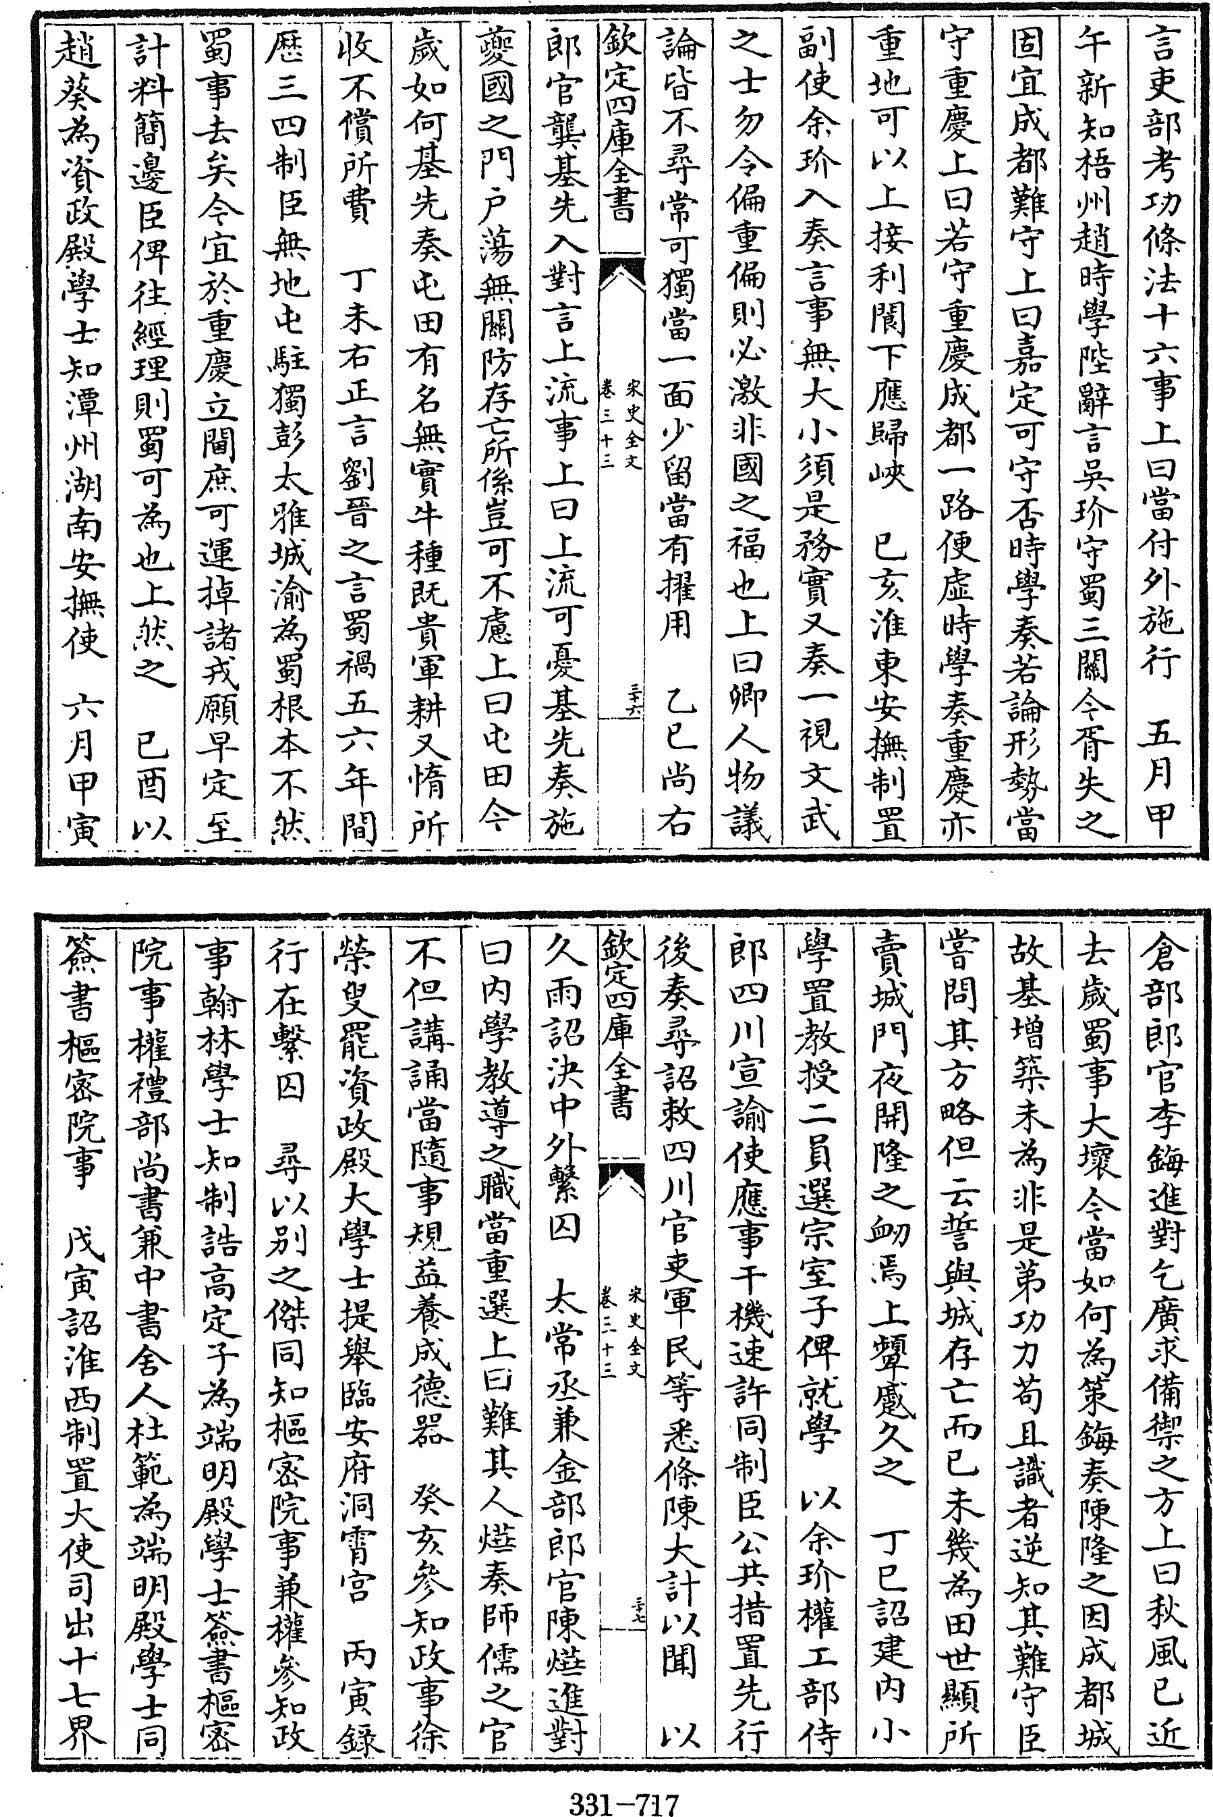 言吏部考功條法十六事上曰當付外施行　五月甲
午新知梧州趙時學陛辭言吳玠守蜀三關今胥失之
固宜成都難守上曰嘉定可守否時學奏若論形勢當
守重慶上曰若守重慶成都一路便虛時學奏重慶亦
重地可以上接利閬下應歸峽　巳亥淮東安撫制置
副使余玠入奏言事無大小須是務實又奏一視文武
之士勿令偏重偏則必激非國之福也上曰卿人物議
論皆不尋常可獨當一面少留當有擢用　乙巳尚右
欽定四庫全書
宋史全文
卷三十三
三十六
郎官龔基先入對言上流事上曰上流可憂基先奏施
夔國之門戶蕩無關防存亡所係豈可不慮上曰屯田今
歲如何基先奏屯田有名無實牛種既貴軍耕又惰所
收不償所費　丁未右正言劉晉之言蜀禍五六年間
歷三四制臣無地屯駐獨彭太雅城渝為蜀根本不然
蜀事去矣今宜於重慶立閫庶可運掉諸戎願早定至
計料簡邊臣俾往經理則蜀可為也上然之　已酉以
趙葵為資政殿學士知潭州湖南安撫使　六月甲寅
倉部郎官李鋂進對乞廣求備禦之方上曰秋風已近
去歲蜀事大壞今當如何為策鋂奏陳隆之因成都城
故基增築未為非是第功力苟且識者逆知其難守臣
嘗問其方略但云誓與城存亡而已未幾為田世顯所
賣城門夜開隆之衂焉上顰蹙久之　丁巳詔建內小
學置教授二員選宗室子俾就學　以余玠權工部侍
郎四川宣諭使應事干機速許同制臣公共措置先行
後奏尋詔敕四川官吏軍民等悉條陳大計以聞　以
欽定四庫全書
宋史全文
卷三十三
三十七
久雨詔決中外繫囚　太常丞兼金部郎官陳爔進對
曰內學教導之職當重選上曰難其人爔奏師儒之官
不但講誦當隨事規益養成德器　癸亥參知政事徐
榮叟罷資政殿大學士提舉臨安府洞霄宮　丙寅錄
行在繫囚　尋以別之傑同知樞密院事兼權參知政
事翰林學士知制誥高定子為端明殿學士簽書樞密
院事權禮部尚書兼中書舍人杜範為端明殿學士同
簽書樞密院事　戊寅詔淮西制置大使司出十七界
331-717